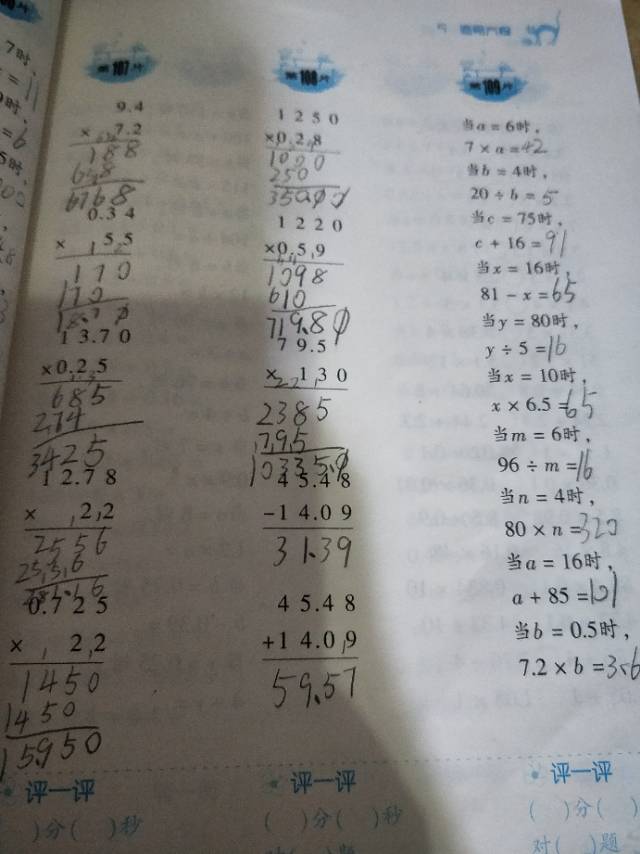 7时,
= 11
时,
= 6
5时,
第107片
9.4
× 7.2
188
658
6768
0.34
× 15.5
170
170
13.70
×0.25
685
274
3425
12.78
× 2.2
2556
2556
0.725
× 2.2
1450
1450
15950
评一评
)分( )秒
第108片
1250
×0.28
1000
250
35000
1220
×0.59
1098
610
719.80
79.5
× 130
2385
795
10335.0
45.48
-14.09
31.39
45.48
+14.09
59.57
评一评
( )分( )秒
第109片
当a=6时,
7×a=42
当b=4时,
20÷b=5
当c=75时,
c+16=91
当x=16时,
81-x=65
当y=80时,
y÷5=16
当x=10时,
x×6.5=65
当m=6时,
96÷m=16
当n=4时,
80×n=320
当a=16时,
a+85=101
当b=0.5时,
7.2×b=3.6
评一评
( )分( )
对( )题